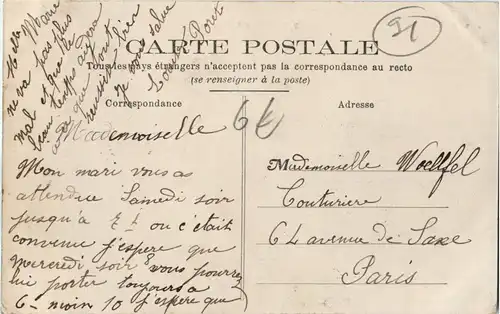 91
CARTE POSTALE
Tous les pays étrangers n'acceptent pas la correspondance au recto
(se renseigner à la poste)
Correspondance
Adresse
6
Mademoiselle
Mon mari vous a
attendue Samedi soir
jusqu'a 7 ou c'était
convenu j'espere que
mercredi soir vous pourrez
lui porter toujours a
6 - moin 10 j'espere que
Melle Marie
ne va pas plus
mal et que le
beau temps
que tout
reussira bien
je vous salue
Mademoiselle Woelffel
Couturiere
64 avenue de Saxe
Paris